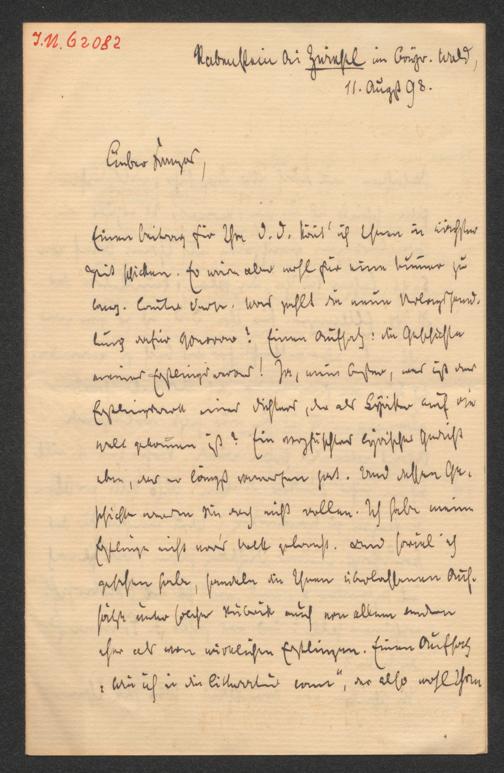 J.N. 62082
Rabenstein bei Zwiesel im Bayr. Wald,
11. Augst 98.
Lieber Franzos,
Einen Beitrag für Ihre D. D. könnt' ich Ihnen in nächster
Zeit schicken. Er wäre aber wohl für eine Nummer zu
lang. Lauter Verse. Was zahlt die neue Verlagshand-
lung dafür Honorar? Einen Aufsatz: die Geschichte
meines Erstlingswerkes! Ja, mein Bester, was ist das
Erstlingswerk eines Dichters, der als Lyriker auf die
Welt gekommen ist? Ein verpfuschtes lyrisches Gedicht
eben, das er längst verworfen hat. Und dessen Ge-
schichte werden Sie doch nicht wollen. Ich habe meine
Erstlinge nicht vor's Welt gebracht. Und soviel ich
gesehen habe, handeln die Ihnen überlassenen Auf-
sätze unter solcher Rubrik auch von allem andern
eher als von wirklichen Erstlingen. Einen Aufsatz
"Wie ich in die Litteratur kam", der also wohl Ihrem